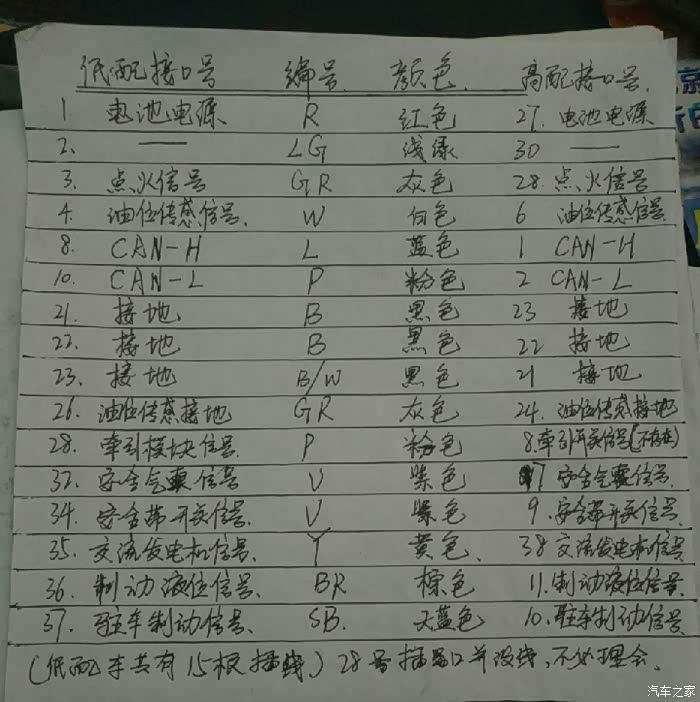 低配接口号 编号. 颜色. 高配接口号.
1 电池电源 R 红色 27. 电池电源
2. — LG 浅绿 30 —
3. 点火信号 GR 灰色 28. 点火信号
4. 油位传感信号. W 白色 6 油位传感信号.
8. CAN-H L 蓝色 1 CAN-H
10. CAN-L P 粉色 2 CAN-L
21. 接地 B 黑色 23 接地
22. 接地 B 黑色 22 接地
23. 接地 B/W 黑色 21 接地
26. 油位传感接地 GR 灰色 24. 油位传感接地
28. 牵引模块信号. P 粉色 8.牵引开关信号(不存在)
32. 安全气囊信号 V 紫色 7 安全气囊信号.
34. 安全带开关信号. V 紫色 9. 安全带开关信号.
35. 交流发电机信号. Y 黄色. 38 交流发电机信号.
36. 制动液位信号. BR 棕色 11.制动液位信号.
37. 驻车制动信号. SB. 天蓝色 10.驻车制动信号.
(低配车共有15根插线.) 28号插口并没线,不必理会.
汽车之家